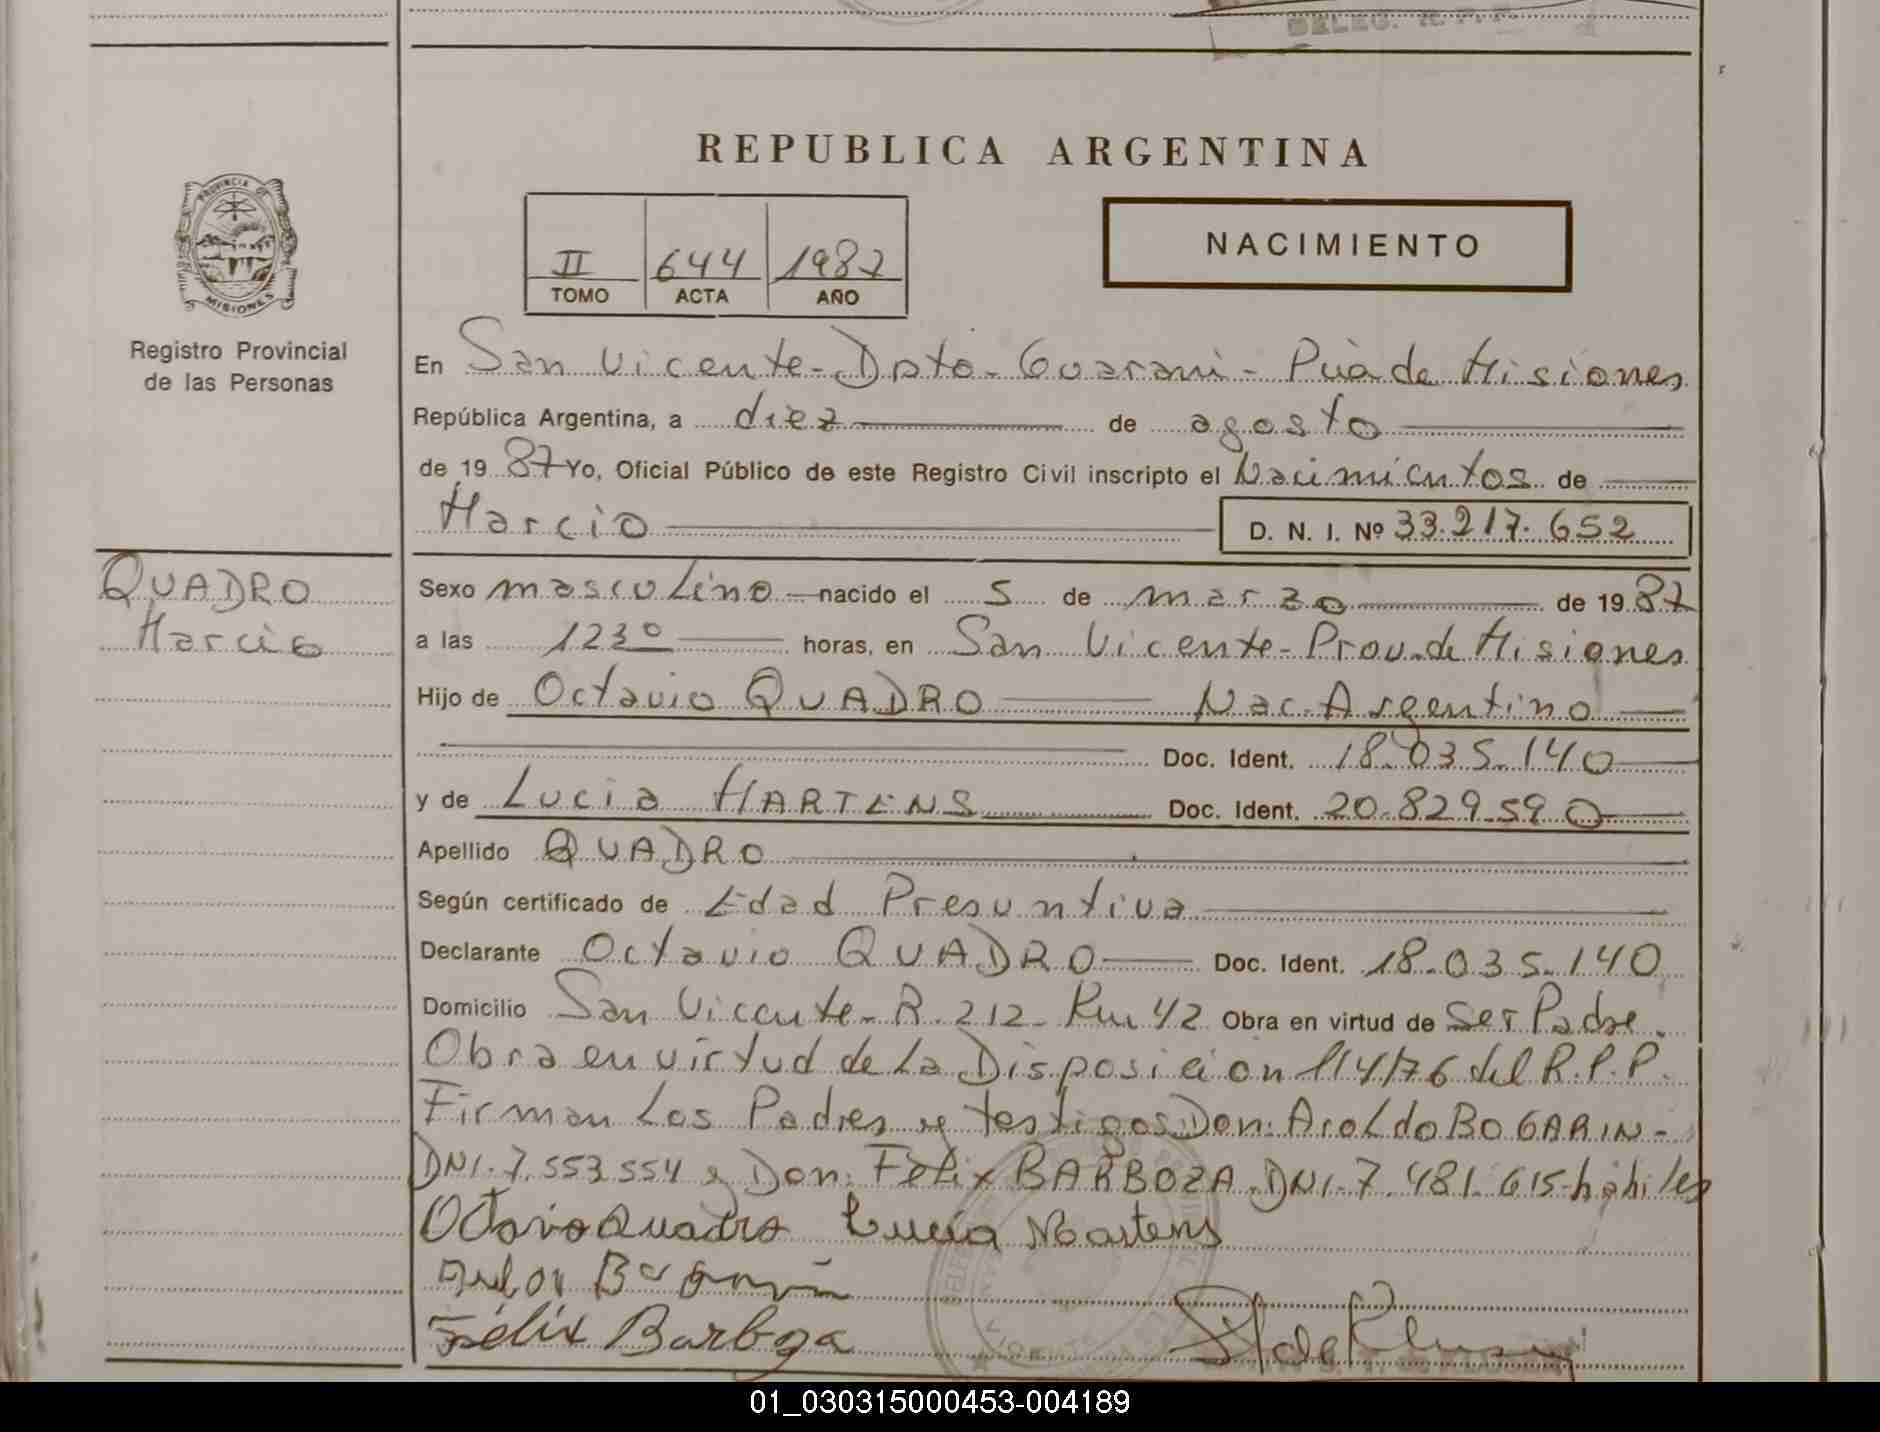 DELEG. R.P.P.
REPUBLICA ARGENTINA
PROVINCIA DE
MISIONES
Registro Provincial
de las Personas
II 644 1987
TOMO ACTA AÑO
NACIMIENTO
En San Vicente - Dpto - Guarani - Pcia de Misiones
República Argentina, a diez de agosto
de 1987 Yo, Oficial Público de este Registro Civil inscripto el Nacimientos de
Marcio D. N. I. Nº 33.217.652
QUADRO
Marcio
Sexo masculino nacido el 5 de marzo de 1987
a las 12³⁰ horas, en San Vicente - Prov. de Misiones
Hijo de Octavio QUADRO Nac. Argentino
Doc. Ident. 18.035.140
y de Lucia MARTENS Doc. Ident. 20.829.590
Apellido QUADRO
Según certificado de Edad Presuntiva
Declarante Octavio QUADRO Doc. Ident. 18.035.140
Domicilio San Vicente - R. 212 - Km 42 Obra en virtud de Ser Padre.
Obra en virtud de La Disposicion 114/76 del R.P.P.
Firman Los Padres y testigos Don: Aroldo BOGARIN -
DNI. 7.553.554 y Don: Félix BARBOZA. DNI. 7.481.615 - habiles
Octavio Quadro Lucia Martens
Félix Barboza
01_030315000453-004189